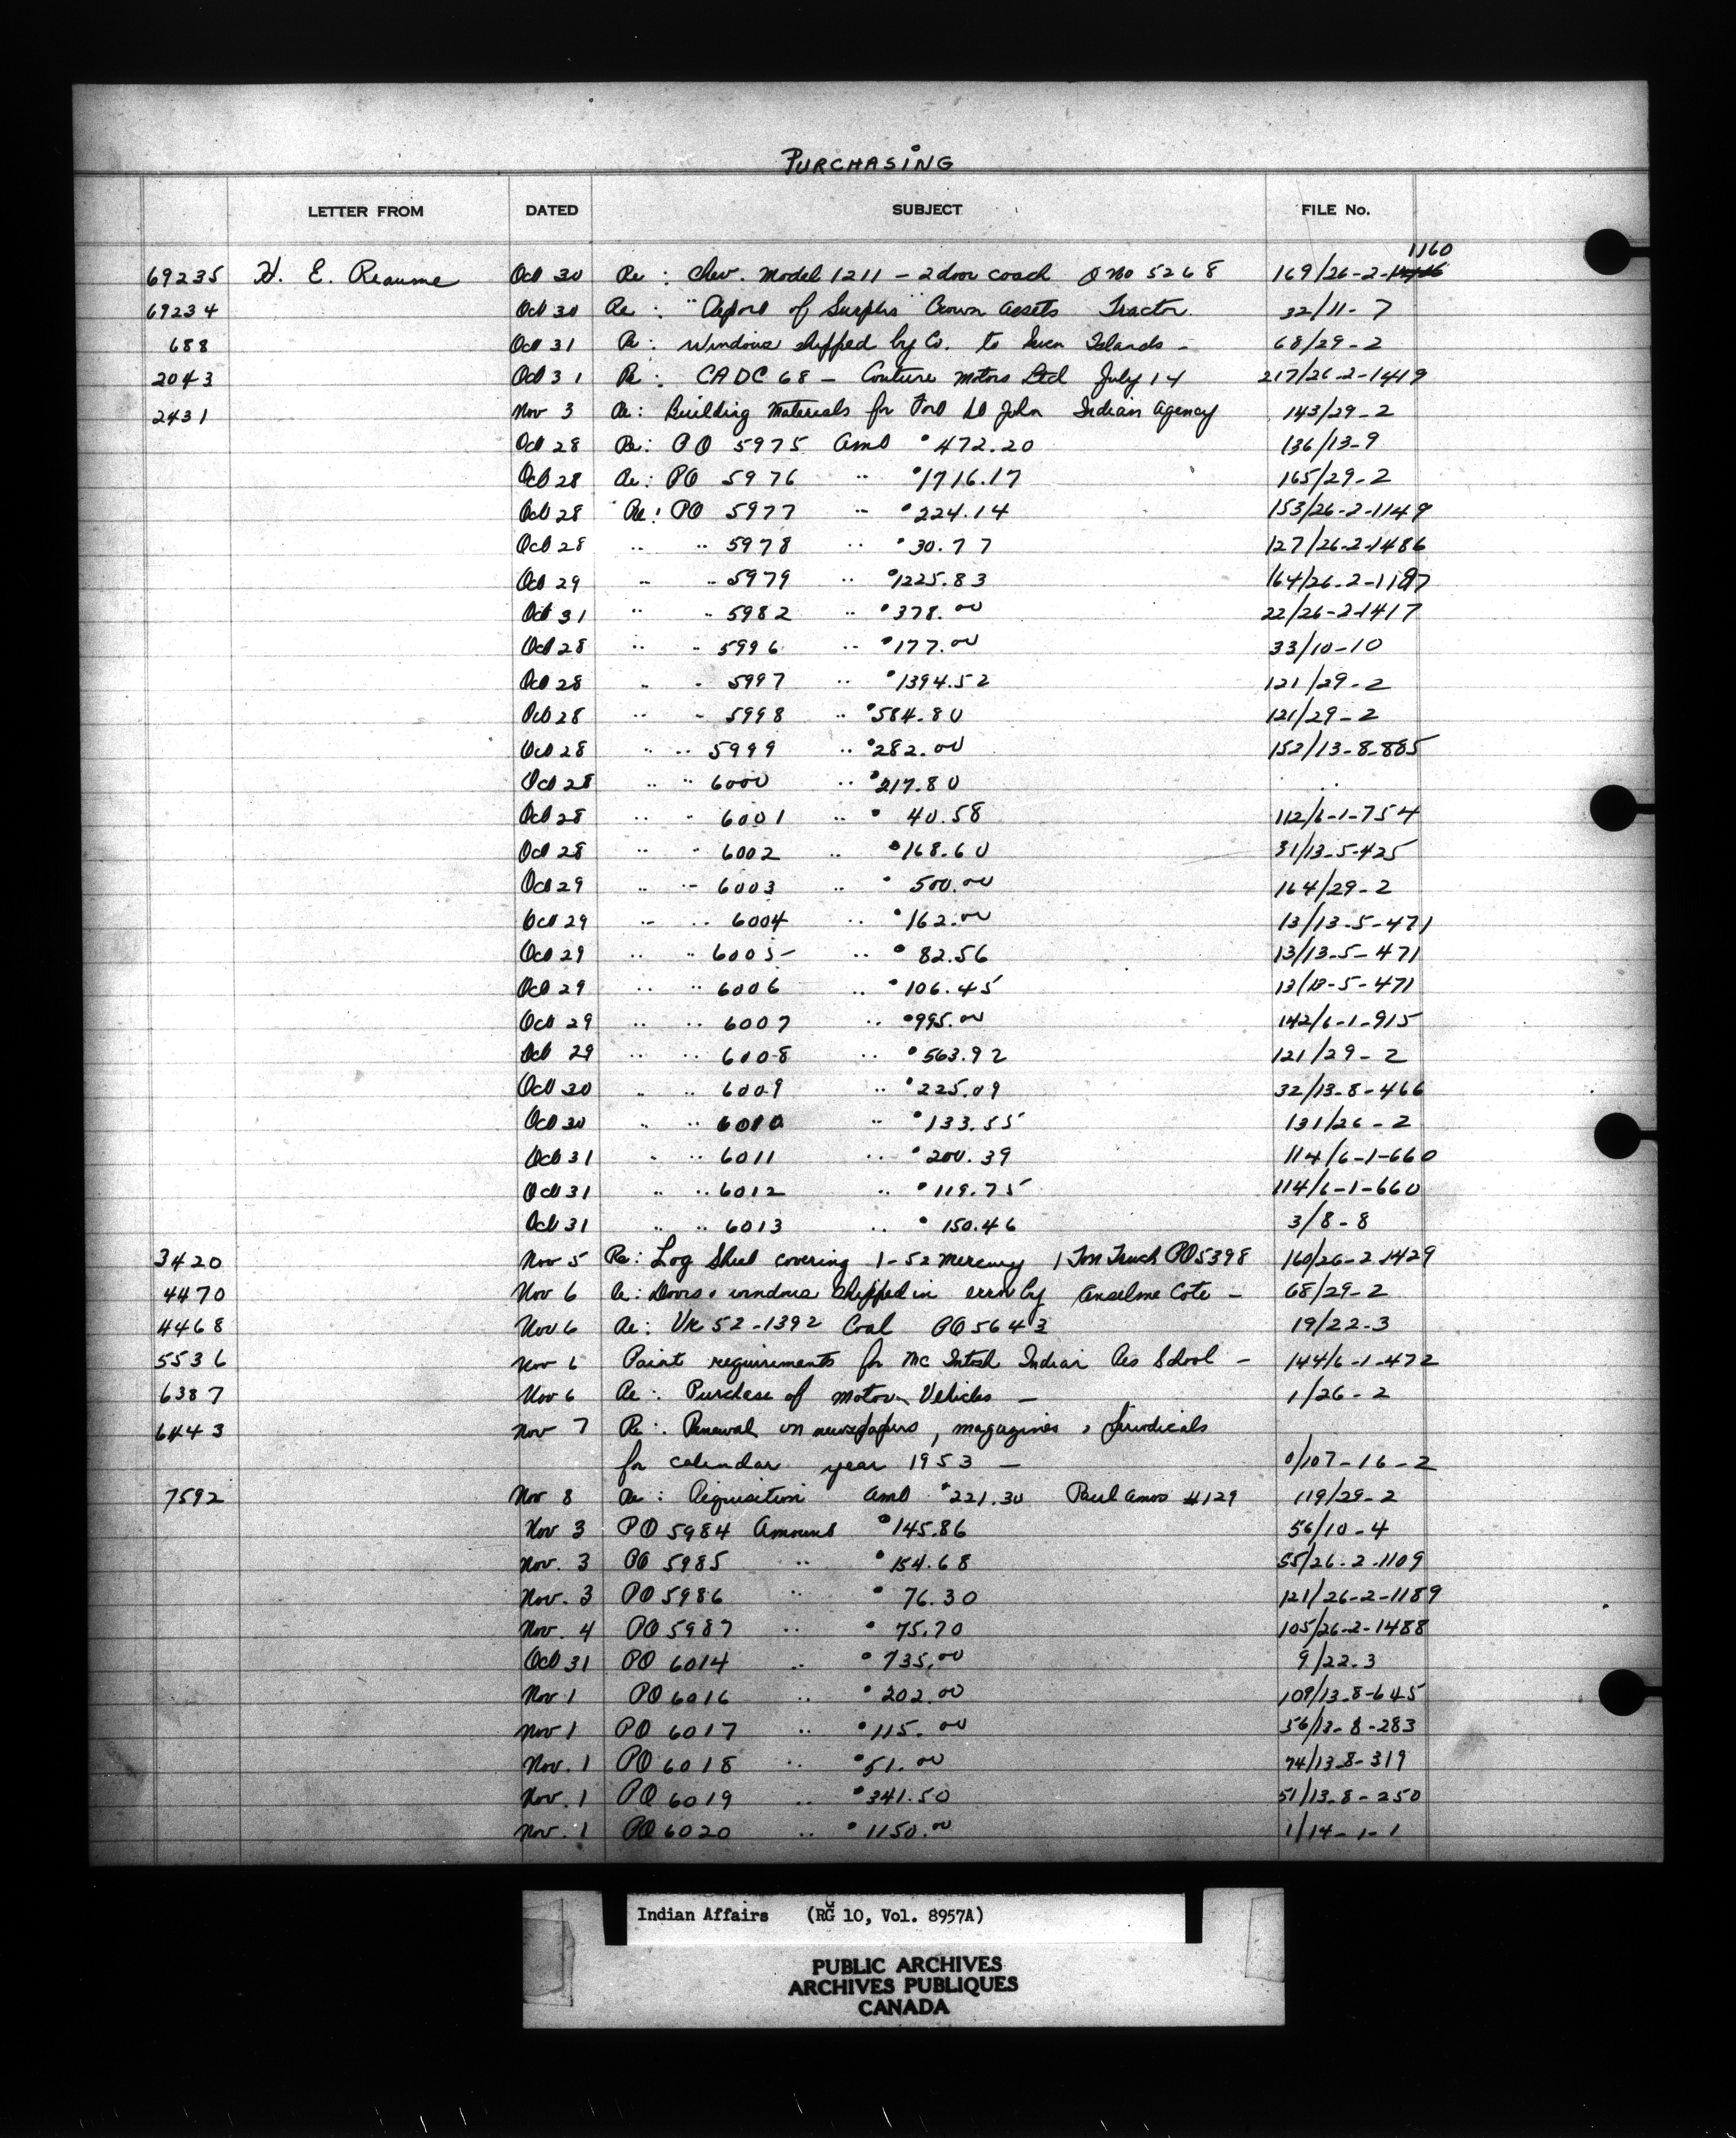 PURCHASING
LETTER FROM DATED SUBJECT FILE No.
1160
69235 H. E. Reaume Oct 30 Re: Chev. Model 1211 - 2 door coach Q No 5268 169/26-2-
69234 Oct 30 Re: "Report of Surplus" Crown Assets Tractor 32/11-7
688 Oct 31 Re: Windows shipped by Co. to Seven Islands - 68/29-2
2043 Oct 31 Re: CADC 68 - Couture Motors Ltd July 14 217/26-2-1419
2431 Nov 3 Re: Building Materials for Fort St John Indian Agency 143/29-2
Oct 28 Re: PO 5975 Amt $472.20 136/13-9
Oct 28 Re: PO 5976 " $1716.17 165/29-2
Oct 28 Re: PO 5977 " $224.14 153/26-2-1149
Oct 28 " " 5978 " $30.77 127/26-2-1486
Oct 29 " " 5979 " $1225.83 164/26-2-1197
Oct 31 " " 5982 " $378.00 22/26-2-1417
Oct 28 " " 5996 " $177.00 33/10-10
Oct 28 " " 5997 " $1394.52 121/29-2
Oct 28 " " 5998 " $584.80 121/29-2
Oct 28 " " 5999 " $282.00 152/13-8-885
Oct 28 " " 6000 " $217.80 "
Oct 28 " " 6001 " $40.58 112/6-1-754
Oct 28 " " 6002 " $168.60 31/13-5-425
Oct 29 " " 6003 " $500.00 164/29-2
Oct 29 " " 6004 " $162.00 13/13-5-471
Oct 29 " " 6005 " $82.56 13/13-5-471
Oct 29 " " 6006 " $106.45 13/13-5-471
Oct 29 " " 6007 " $995.00 142/6-1-915
Oct 29 " " 6008 " $563.92 121/29-2
Oct 30 " " 6009 " $225.09 32/13-8-466
Oct 30 " " 6010 " $133.55 131/26-2
Oct 31 " " 6011 " $200.39 114/6-1-660
Oct 31 " " 6012 " $119.75 114/6-1-660
Oct 31 " " 6013 " $150.46 3/8-8
3420 Nov 5 Re: Log Sheet covering 1-52 Mercury 1 Ton Truck PO 5398 160/26-2-1429
4470 Nov 6 Re: Doors & windows shipped in error by Anselme Cote - 68/29-2
4468 Nov 6 Re: Vic 52-1392 Coal PO 5643 19/22-3
5536 Nov 6 Paint requirements for Mc Intosh Indian Res School - 144/6-1-472
6387 Nov 6 Re: Purchase of Motor Vehicles - 1/26-2
6443 Nov 7 Re: Renewal on newspapers, magazines & periodicals
for calendar year 1953 - 0/107-16-2
7592 Nov 8 Re: Requisition Amt $221.30 Paul Amos #129 119/29-2
Nov 3 PO 5984 Amount $145.86 56/10-4
Nov. 3 PO 5985 " $154.68 55/26-2-1109
Nov. 3 PO 5986 " $76.30 121/26-2-1189
Nov. 4 PO 5987 " $75.70 105/26-2-1488
Oct 31 PO 6014 " $735.00 9/22-3
Nov 1 PO 6016 " $202.00 109/13-8-645
Nov 1 PO 6017 " $115.00 56/13-8-283
Nov. 1 PO 6018 " $51.00 74/13-8-319
Nov. 1 PO 6019 " $341.50 51/13-8-250
Nov. 1 PO 6020 " $1150.00 1/14-1-1
Indian Affairs (RG 10, Vol. 8957A)
PUBLIC ARCHIVES
ARCHIVES PUBLIQUES
CANADA